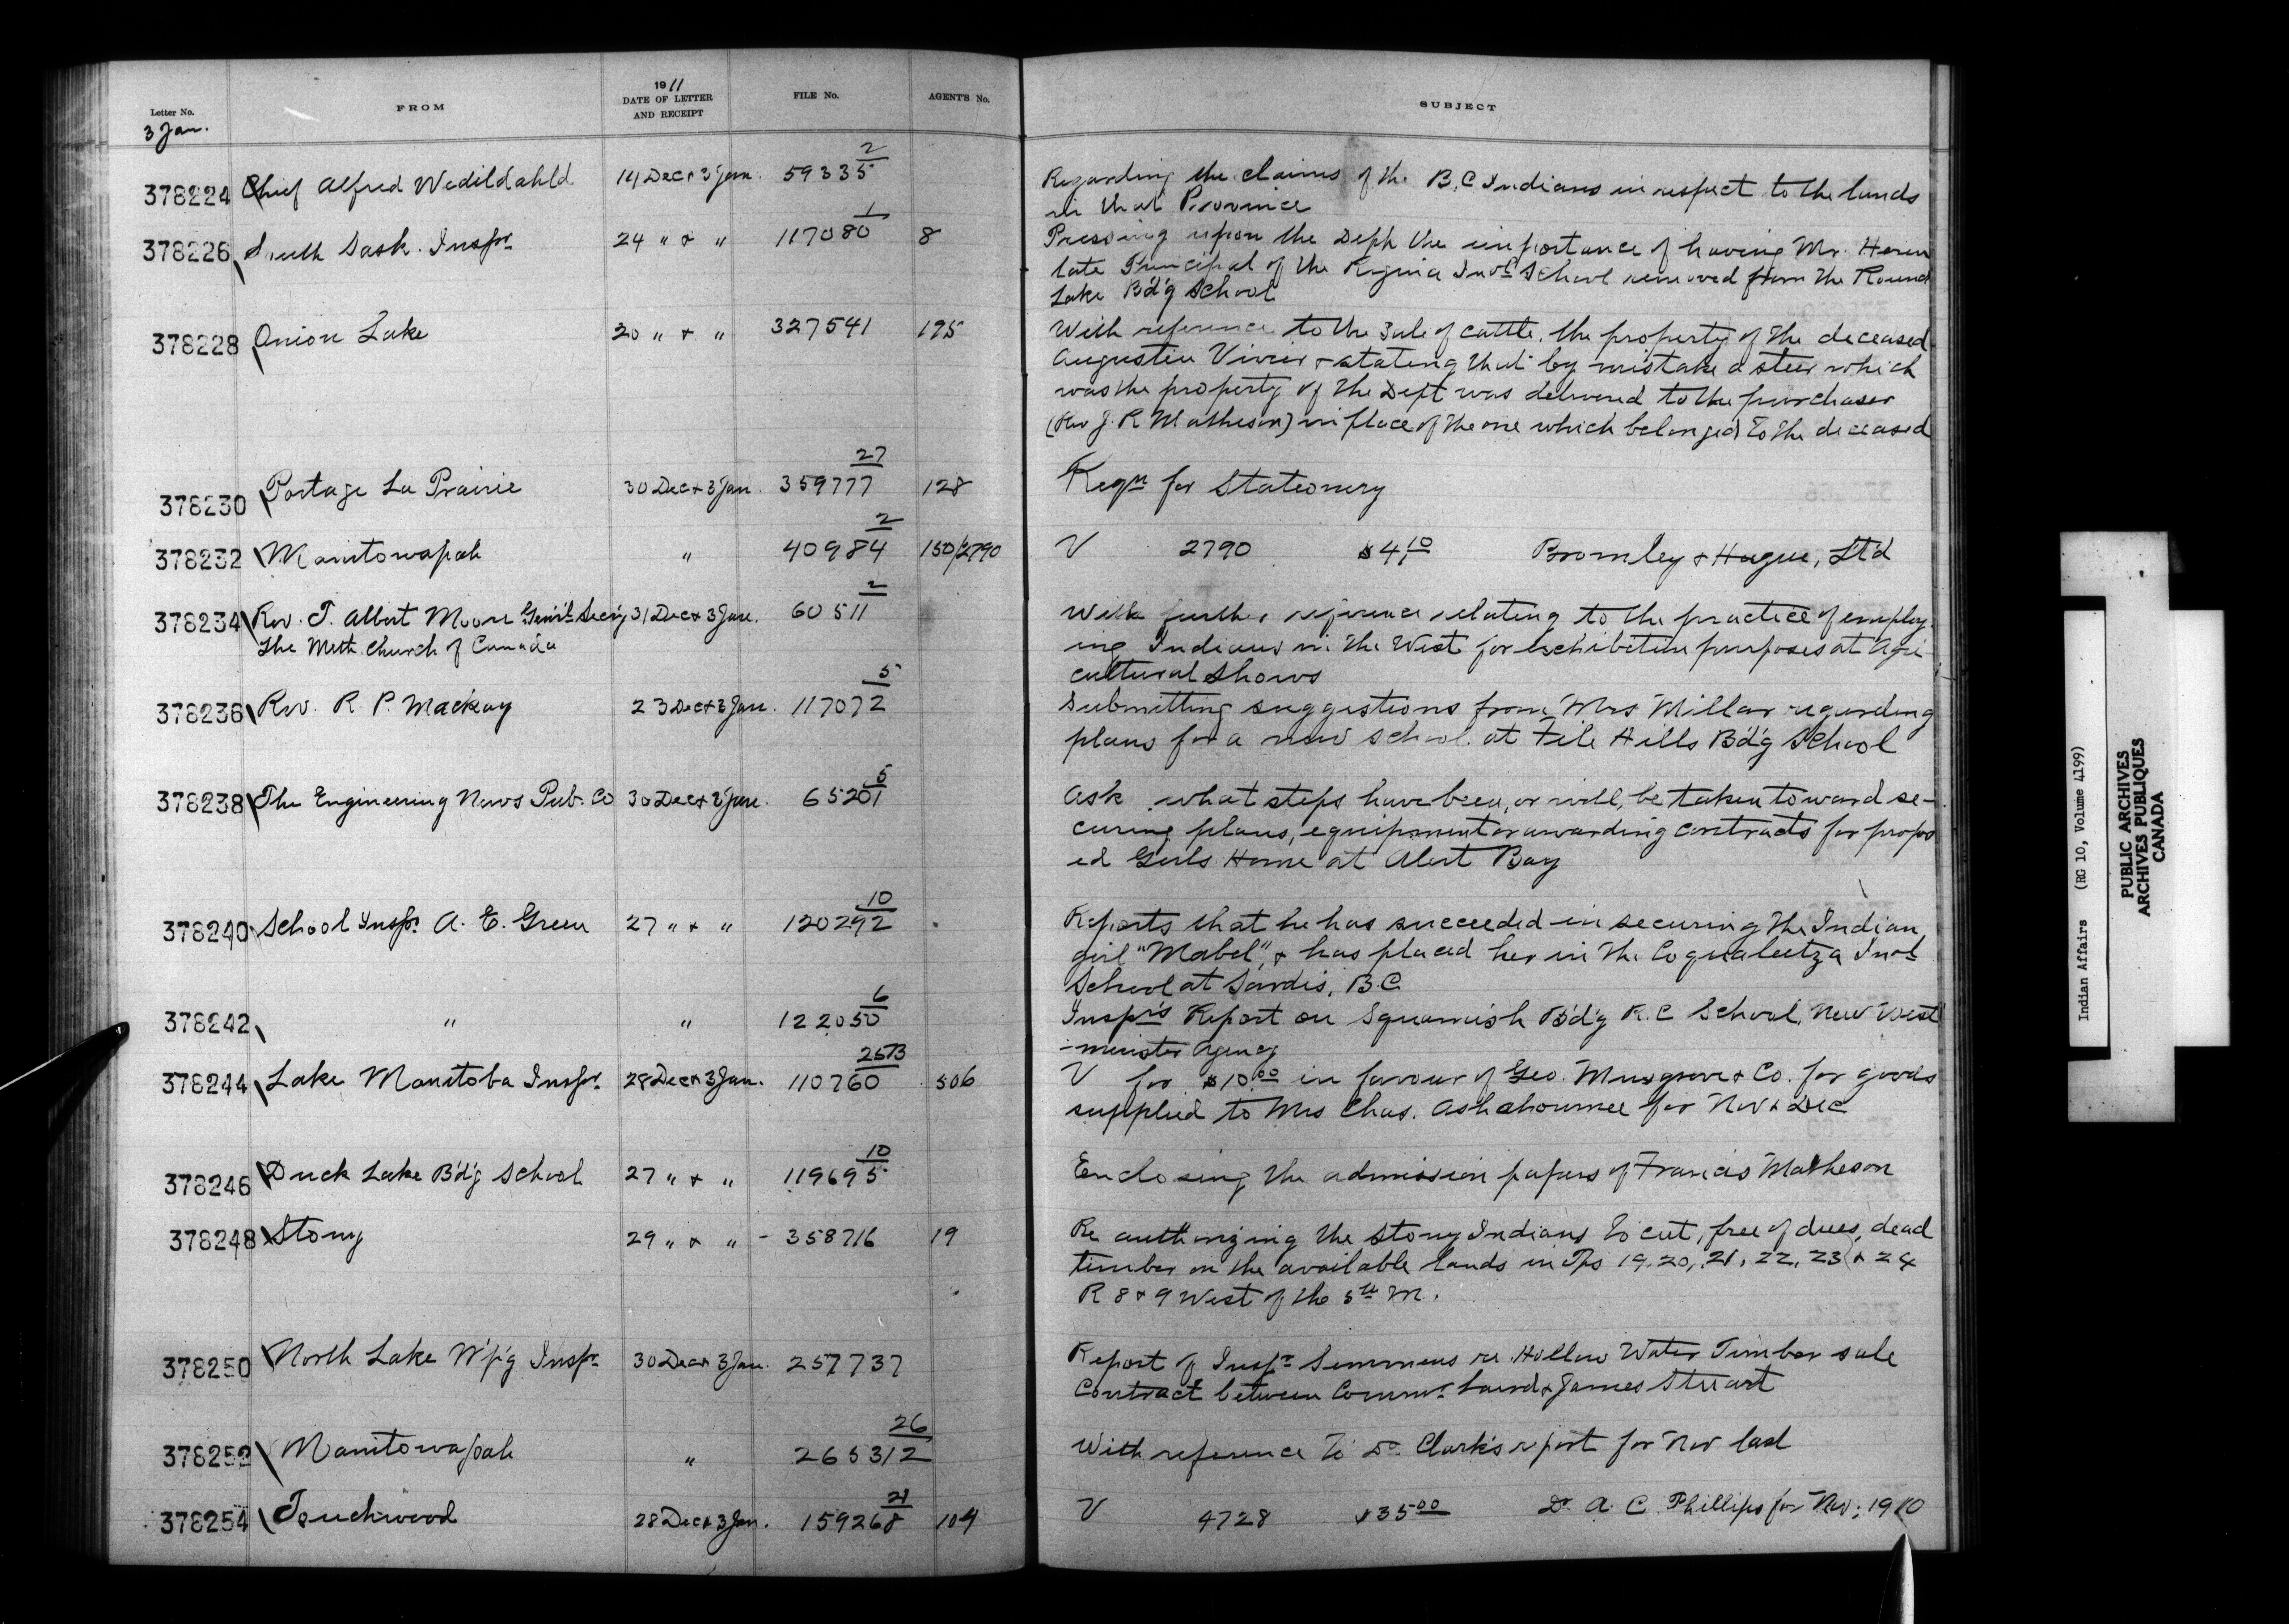 Letter No.
FROM
1911
DATE OF LETTER
AND RECEIPT
FILE No.
AGENT'S No.
SUBJECT
3 Jan.
378224 Chief Alfred 14 Dec & 3 Jan. 59335 2 Regarding the claims of the B.C Indians in respect to the lands
in that Province
378226 South Sask. Inspr. 24 " & " 117080 1 8 Pressing upon the Dept the importance of having Mr.
late Principal of the Regina Indl School removed from the Round
Lake Bd'g School
378228 Onion Lake 20 " & " 327541 195 With reference to the sale of cattle, the property of the deceased
Augustin & stating that by mistake a steer which
was the property of the Dept was delivered to the purchaser
(Rev J. R Matheson) in place of the one which belonged to the deceased
378230 Portage La Prairie 30 Dec & 3 Jan. 359777 27 128 Reqn for Stationery
378232 Manitowapah " 40984 2 150/2790 V 2790 $4.10 Bromley & Hague, Ltd
378234 Rev. T. Albert Moore Gen'l Sec'y 31 Dec & 3 Jan. 60511 2 With further reference relating to the practice of employ-
The Meth. Church of Canada ing Indians in the West for exhibition purposes at Agri-
cultural Shows
378236 Rev. R. P. Mackay 23 Dec & 3 Jan. 117072 5 Submitting suggestions from Mrs Millar regarding
plans for a new school at File Hills Bd'g School
378238 The Engineering News Pub. Co 30 Dec & 3 Jan. 65201 5 Ask what steps have been, or will, be taken toward se-
curing plans, equipment or awarding contracts for propos
ed Girls Home at Alert Bay
378240 School Inspr. A. E. Green 27 " & " 120292 10 Reports that he has succeeded in securing the Indian
girl "Mabel", & has placed her in the Coqualeetza Indl
School at Sardis, B.C.
378242 " " 122050 6 Inspr's Report on Squamish Bd'g R.C School, New West
-minster Agency
378244 Lake Manitoba Inspr. 28 Dec & 3 Jan. 110760 2573 506 V for $10.00 in favour of Geo. Musgrove & Co. for goods
supplied to Mrs Chas. for Nov & Dec
378246 Duck Lake Bd'g School 27 " & " 119695 10 Enclosing the admission papers of Francis Matheson
378248 Stony 29 " & " - 358716 19 Re authorizing the Stony Indians to cut, free of dues, dead
timber on the available lands in Tps 19, 20, 21, 22, 23 & 24
R 8 & 9 West of the 5th M.
378250 North Lake W'p'g Inspr 30 Dec & 3 Jan. 257737 Report of Inspr Semmens re Hollow Water Timber sale
Contract between Commr. Laird & James Stuart
378252 Manitowapah " 265312 26 With reference to Dr. Clark's report for Nov last
378254 Touchwood 28 Dec & 3 Jan. 159268 21 104 V 4728 $35.00 Dr. A. C. Phillips for Nov; 1910
Indian Affairs (RG 10, Volume 4199)
PUBLIC ARCHIVES
ARCHIVES PUBLIQUES
CANADA